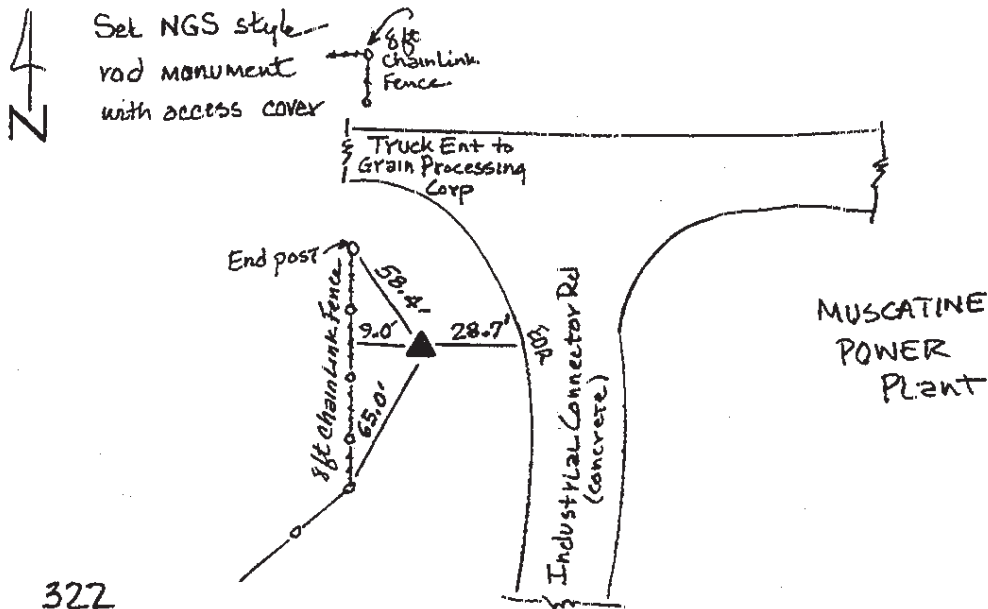 Set NGS style
rod monument
with access cover
8ft
ChainLink
Fence
N
Truck Ent to
Grain Processing
Corp
End post
58.4'
8ft ChainLink Fence
9.0'
28.7'
EOR
65.0'
Industrial Connector Rd
(concrete)
MUSCATINE
POWER
Plant
322